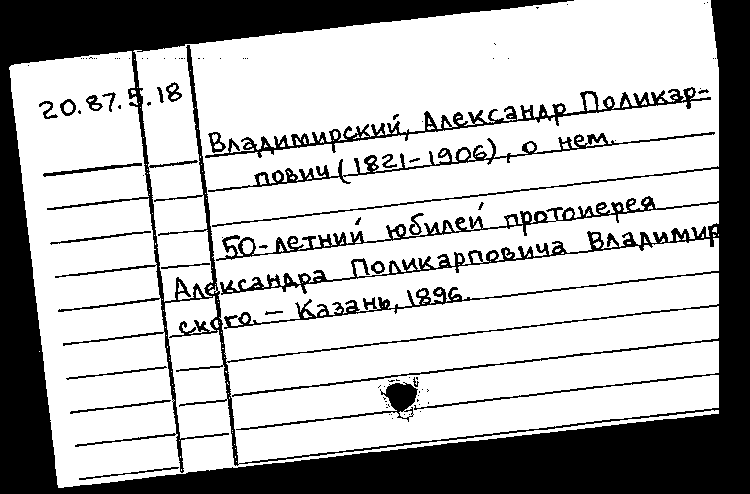 20.87.5.18
Владимирский, Александр Поликар-
пович (1821-1906), о нем.
50-летний юбилей протоиерея
Александра Поликарповича Владимир
ского. - Казань, 1896.